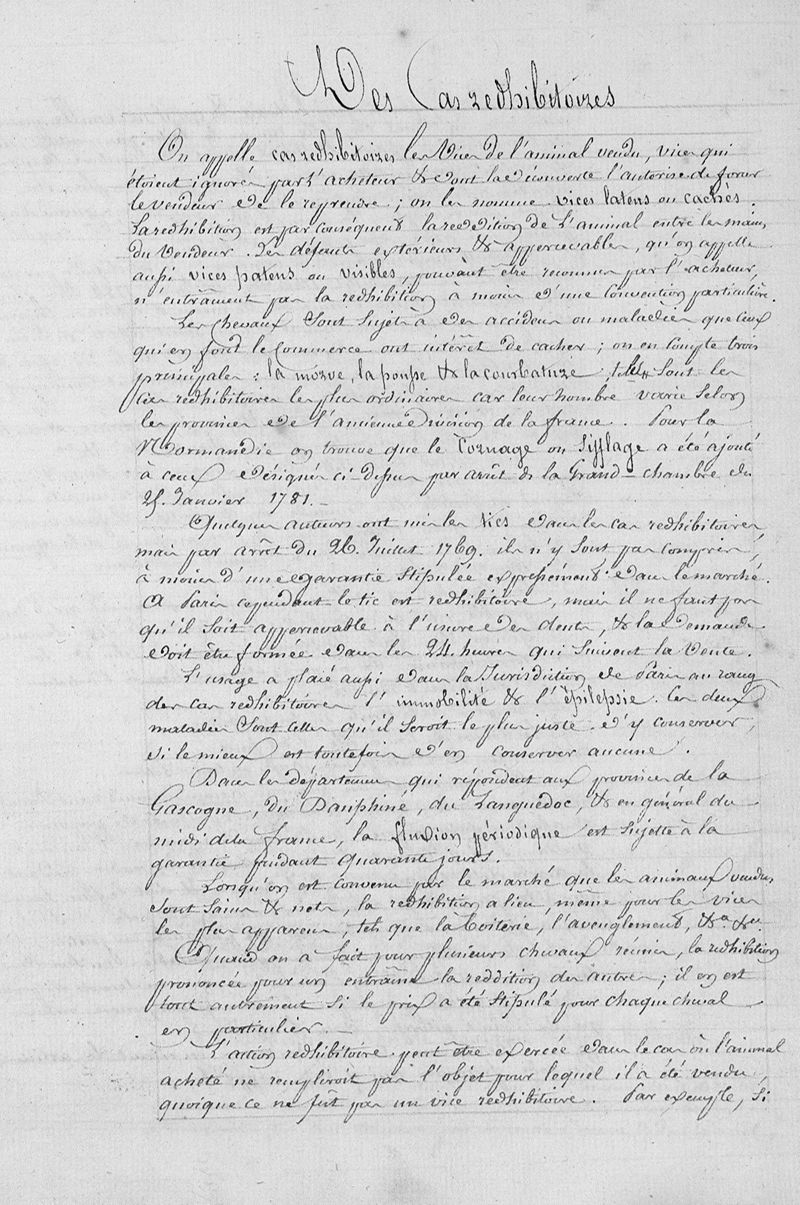 Des Cas redhibitoires
On appelle cas redhibitoires les Vices de l'animal vendu, vices qui
étoient ignorés par l'acheteur & dont la découverte l'autorise de forcer
le vendeur de le reprendre ; on les nomme vices latens ou cachés.
La redhibition est par conséquent la reddition de l'animal entre les mains
du Vendeur. Les défauts extérieurs & appercevables, qu'on appelle
aussi vices patens ou visibles, pouvant être reconnus par l'acheteur,
n'entrâinent pas la redhibition à moins d'une convention particulière.
Les chevaux sont sujets à des accidens ou maladies que ceux
qui en font le Commerce ont intérêt de cacher ; on en compte trois
principales : la morve, la pousse & la courbature telles sont les
cas redhibitoires les plus ordinaires car leur nombre varie selon
les provinces de l'ancienne division de la france. Pour la
Normandie on trouve que le Cornage ou Sifflage a été ajouté
à ceux désignés ci-dessus par arrêt de la Grand-chambre du
25. Janvier 1781.-
Quelques auteurs ont mis les tics dans les cas redhibitoires
mais par arrêt du 26. Juillet 1769. ils n'y sont pas compris,
à moins d'une garantie stipulée expressément dans le marché.
A Paris cependant le tic est redhibitoire, mais il ne faut pas
qu'il soit appercevable à l'usure des dents, & la demande
doit être formée dans les 24. heures qui suivent la Vente.
L'usage a placé aussi dans la Jurisdiction de Paris au rang
des cas redhibitoires l'immobilité & l'épilepsie. Ces deux
maladies sont celles qu'il seroit le plus juste d'y conserver,
si le mieux est toutefois d'en conserver aucune.
Dans les départemens qui répondent aux provinces de la
Gascogne, du Dauphiné, du Languedoc, & en général du
midi de la france, la fluxion périodique est sujette à la
garantie pendant quarante jours.
Lorsqu'on est convenu par le marché que les animaux vendus
sont sains & nets, la redhibition a lieu même pour les vices
les plus apparens, tels que la boiterie, l'aveuglement, &a &a.
Quand on a fait pour plusieurs chevaux réunis, la redhibition
prononcée pour un entrâine la reddition des autres ; il en est
tout autrement si le prix a été stipulé pour chaque cheval
en particulier.-
L'action redhibitoire peut être exercée dans le cas où l'animal
acheté ne rempliroit pas l'objet pour lequel il a été vendu,
quoique ce ne fut pas un vice redhibitoire. Par exemple, si